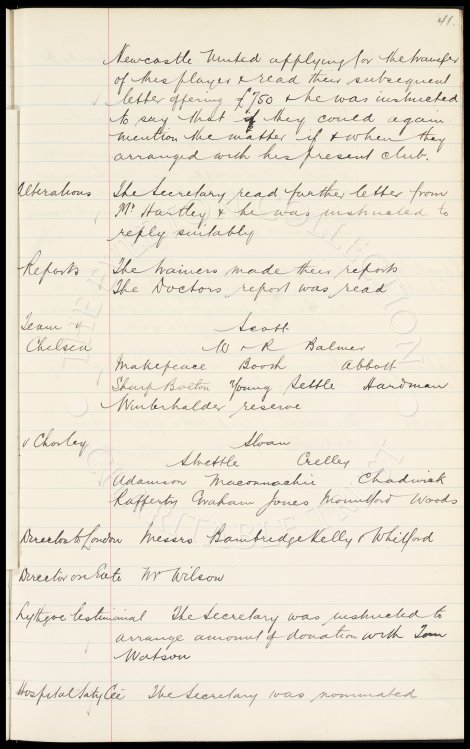 41.
Newcastle United applying for the transfer
of this player & read their subsequent
letter offering £750 & he was instructed
to say that if they could again
mention the matter if & when they
arranged with his present club.
Alterations The Secretary read further letter from
Mr Hartley & he was instructed to
reply suitably
Reports The trainers made their reports
The Doctors report was read
Team v Scott
Chelsea W & R Balmer
Makepeace Booth Abbott
Sharp Bolton Young Settle Hardman
Winterhalder reserve
v Chorley Sloan
Strettle Crelley
Adamson Maconnachie Chadwick
Rafferty Graham Jones Mountford Woods
Directors to London Messrs Bainbridge Kelly & Whitford
Director on Gate Mr Wilson
Lythgoe Testimonial The Secretary was instructed to
arrange amount of donation with Tom
Watson
Hospital Saty Cee The Secretary was nominated